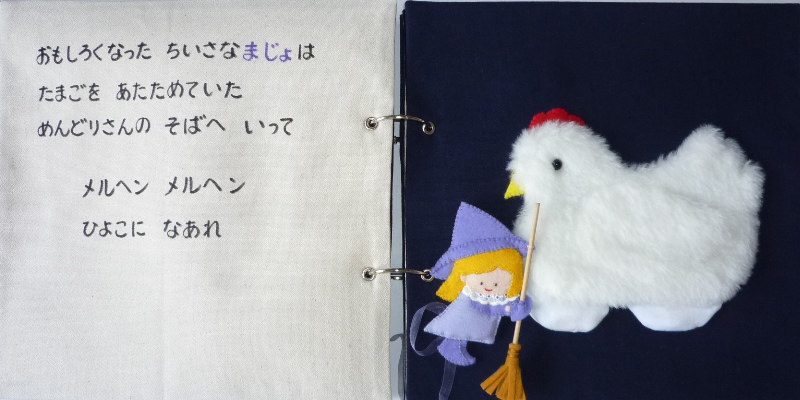 おもしろくなった ちいさなまじょは
たまごを あたためていた
めんどりさんの そばへ いって
メルヘン メルヘン
ひよこに なあれ